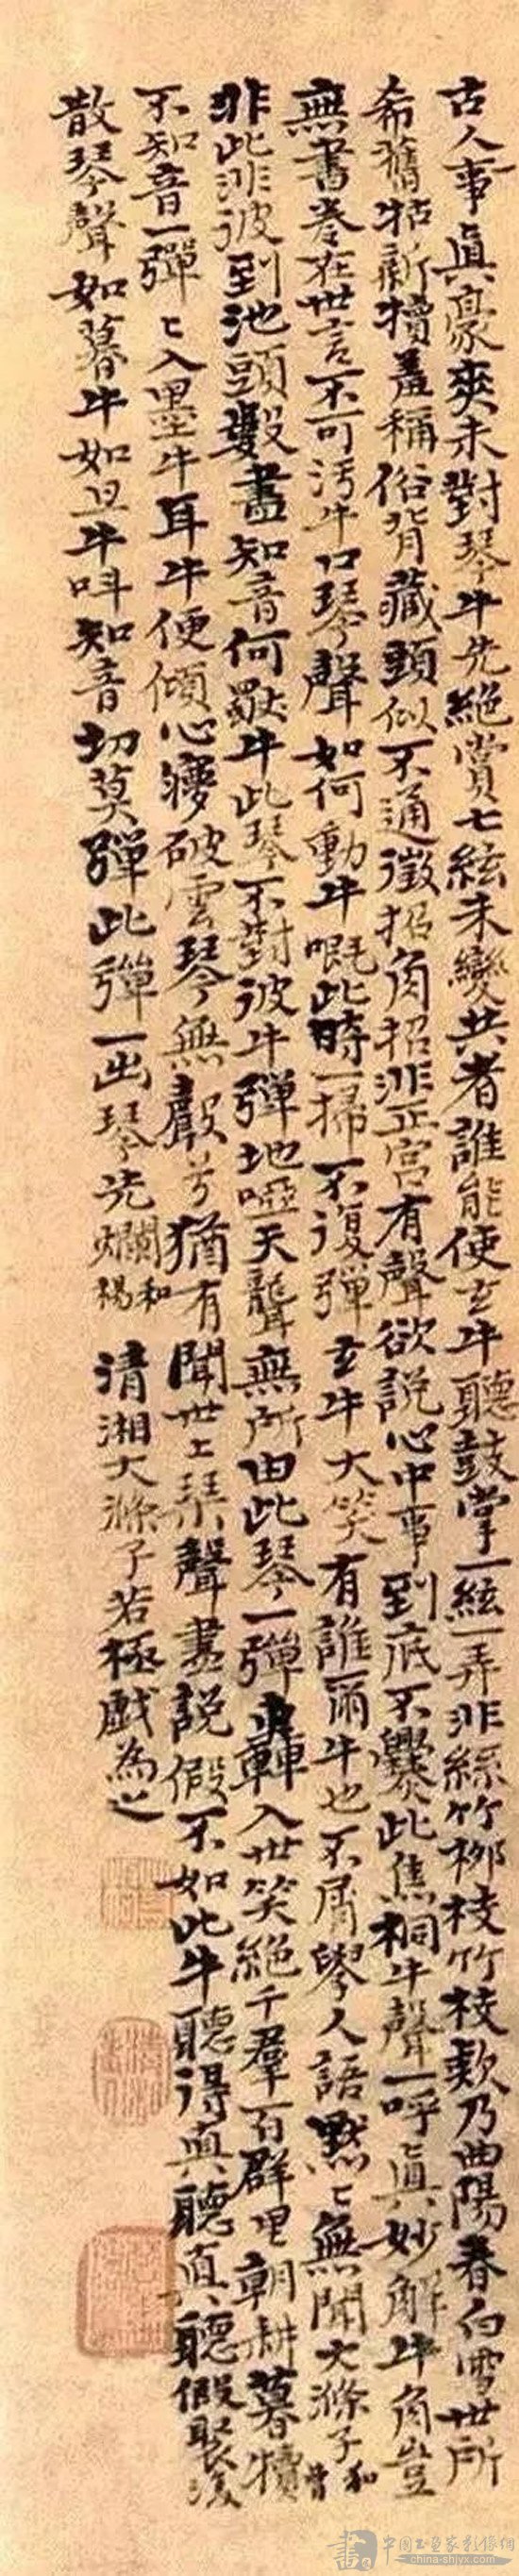 古人事真豪爽未對琴牛先絕賞七絃未變共者誰能使玄牛聽鼓掌一絃一弄非絲竹柳枝竹枝欸乃曲陽春白雪世所
希舊牯新犢羞稱俗背藏頭似不通徵招角招非正宮有聲欲說心中事到底不爨此焦桐牛聲一呼真妙解牛角豈
無書卷在世言不可污牛口琴聲如何動牛嘅此時一掃不復彈玄牛大笑有誰爾牛也不屑學人語默匕無聞大滌子和曹
非此非彼到池頭數盡知音何獨牛此琴不對彼牛彈地啞天聾無所由此琴一彈轟入世笑絕千羣百群里朝耕暮犢
不知音一彈匕入墨牛耳牛便傾心寢破雲琴無聲兮猶有聞世上琴聲盡說假不如此牛聽得真聽真聽假聚復
散琴聲如暮牛如旦牛叫知音切莫彈此彈一出琴先爛和楊 清湘大滌子若極戲為之
中国书画家影像网
china-shjyx.com